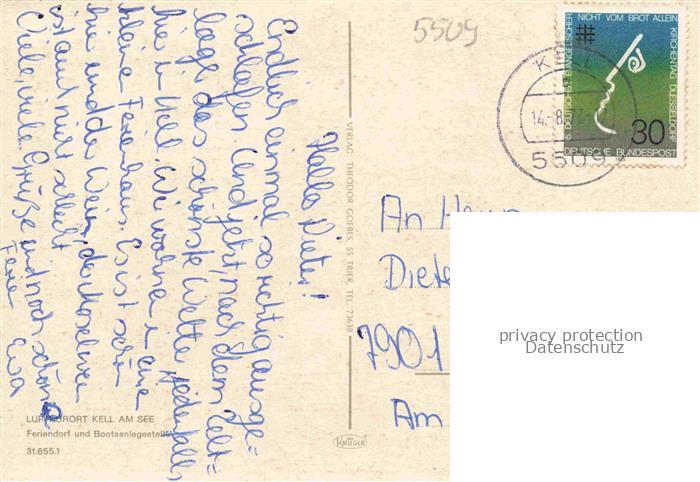 5509
NICHT VOM BROT ALLEIN
15. DEUTSCHER EVANGELISCHER
KIRCHENTAG DUESSELDORF
30
DEUTSCHE BUNDESPOST
KELL
14.-8.
5509
Hallo Dieter!
Endlich einmal so richtig ausge=
schlafen. Und jetzt, nach dem
lage das schönste Wetter, jedenfalls
hier in Kell. Wir wohnen in eine
kleine Ferienhaus. Es ist schön
hier und der Wein, der Moselwein
ist auch nicht schlecht
Viele, viele Grüße und noch schöne
Ferien Eva
VERLAG THEODOR GOEBEL, 55 TRIER, TEL. 73638
An Herrn
Diete
7901
Am
privacy protection
Datenschutz
LUFTKURORT KELL AM SEE
Feriendorf und Bootsanlegestelle
31.655.1
KRÜGER